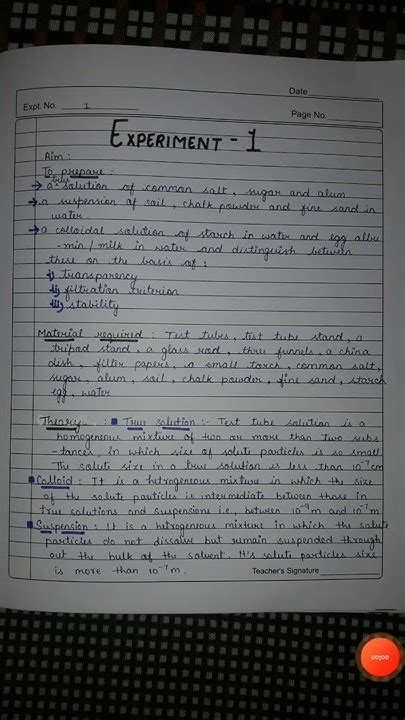 Date
Expt. No. 1
Page No.
EXPERIMENT - 1
Aim :
To prepare :
→ a true solution of common salt, sugar and alum
→ a suspension of soil, chalk powder and fine sand in
water.
→ a colloidal solution of starch in water and egg albu
-min/milk in water and distinguish between
these on the basis of :
i) transparency
ii) filtration criterion
iii) stability
Material required : Test tubes, test tube stand, a
tripod stand, a glass rod, three funnels, a china
dish, filter papers, a small torch, common salt,
sugar, alum, soil, chalk powder, fine sand, starch
egg, water
Theory : ■ True solution :- Test tube solution is a
homogeneous mixture of two or more than two subs
-tances, in which size of solute particles is so small.
The solute size in a true solution is less than 10⁻⁷cm
■ Colloid : It is a hetrogeneous mixture in which the size
of the solute particles is intermediate between those in
true solutions and suspensions i.e, between 10⁻⁹m and 10⁻⁷m
■ Suspension : It is a hetrogeneous mixture in which the solute
particles do not dissolve but remain suspended through
out the bulk of the solvent. It's solute particles size
is more than 10⁻⁷m.
Teacher's Signature
00:00